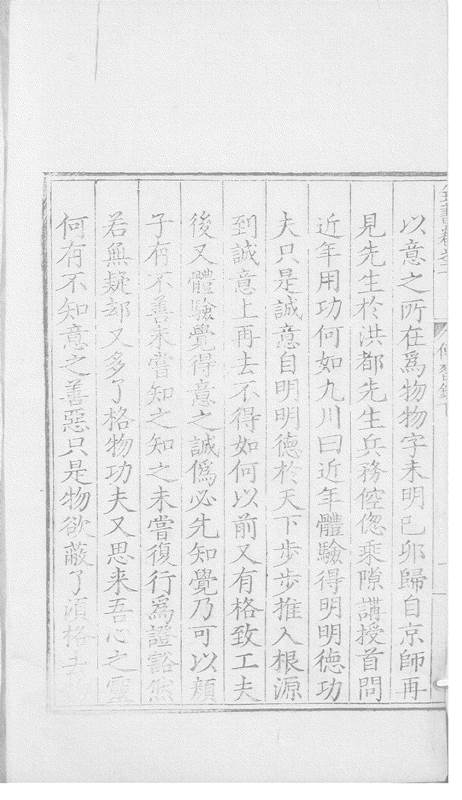 傳習錄下
以意之所在爲物物字未明己卯歸自京師再
見先生於洪都先生兵務倥傯乘隙講授首問
近年用功何如九川曰近年體驗得明明德功
夫只是誠意自明明德於天下步步推入根源
到誠意上再去不得如何以前又有格致工夫
後又體驗覺得意之誠僞必先知覺乃可以顏
子有不善未嘗知之知之未嘗復行爲證豁然
若無疑却又多了格物功夫又思来吾心之靈
何有不知意之善惡只是物欲蔽了湏格